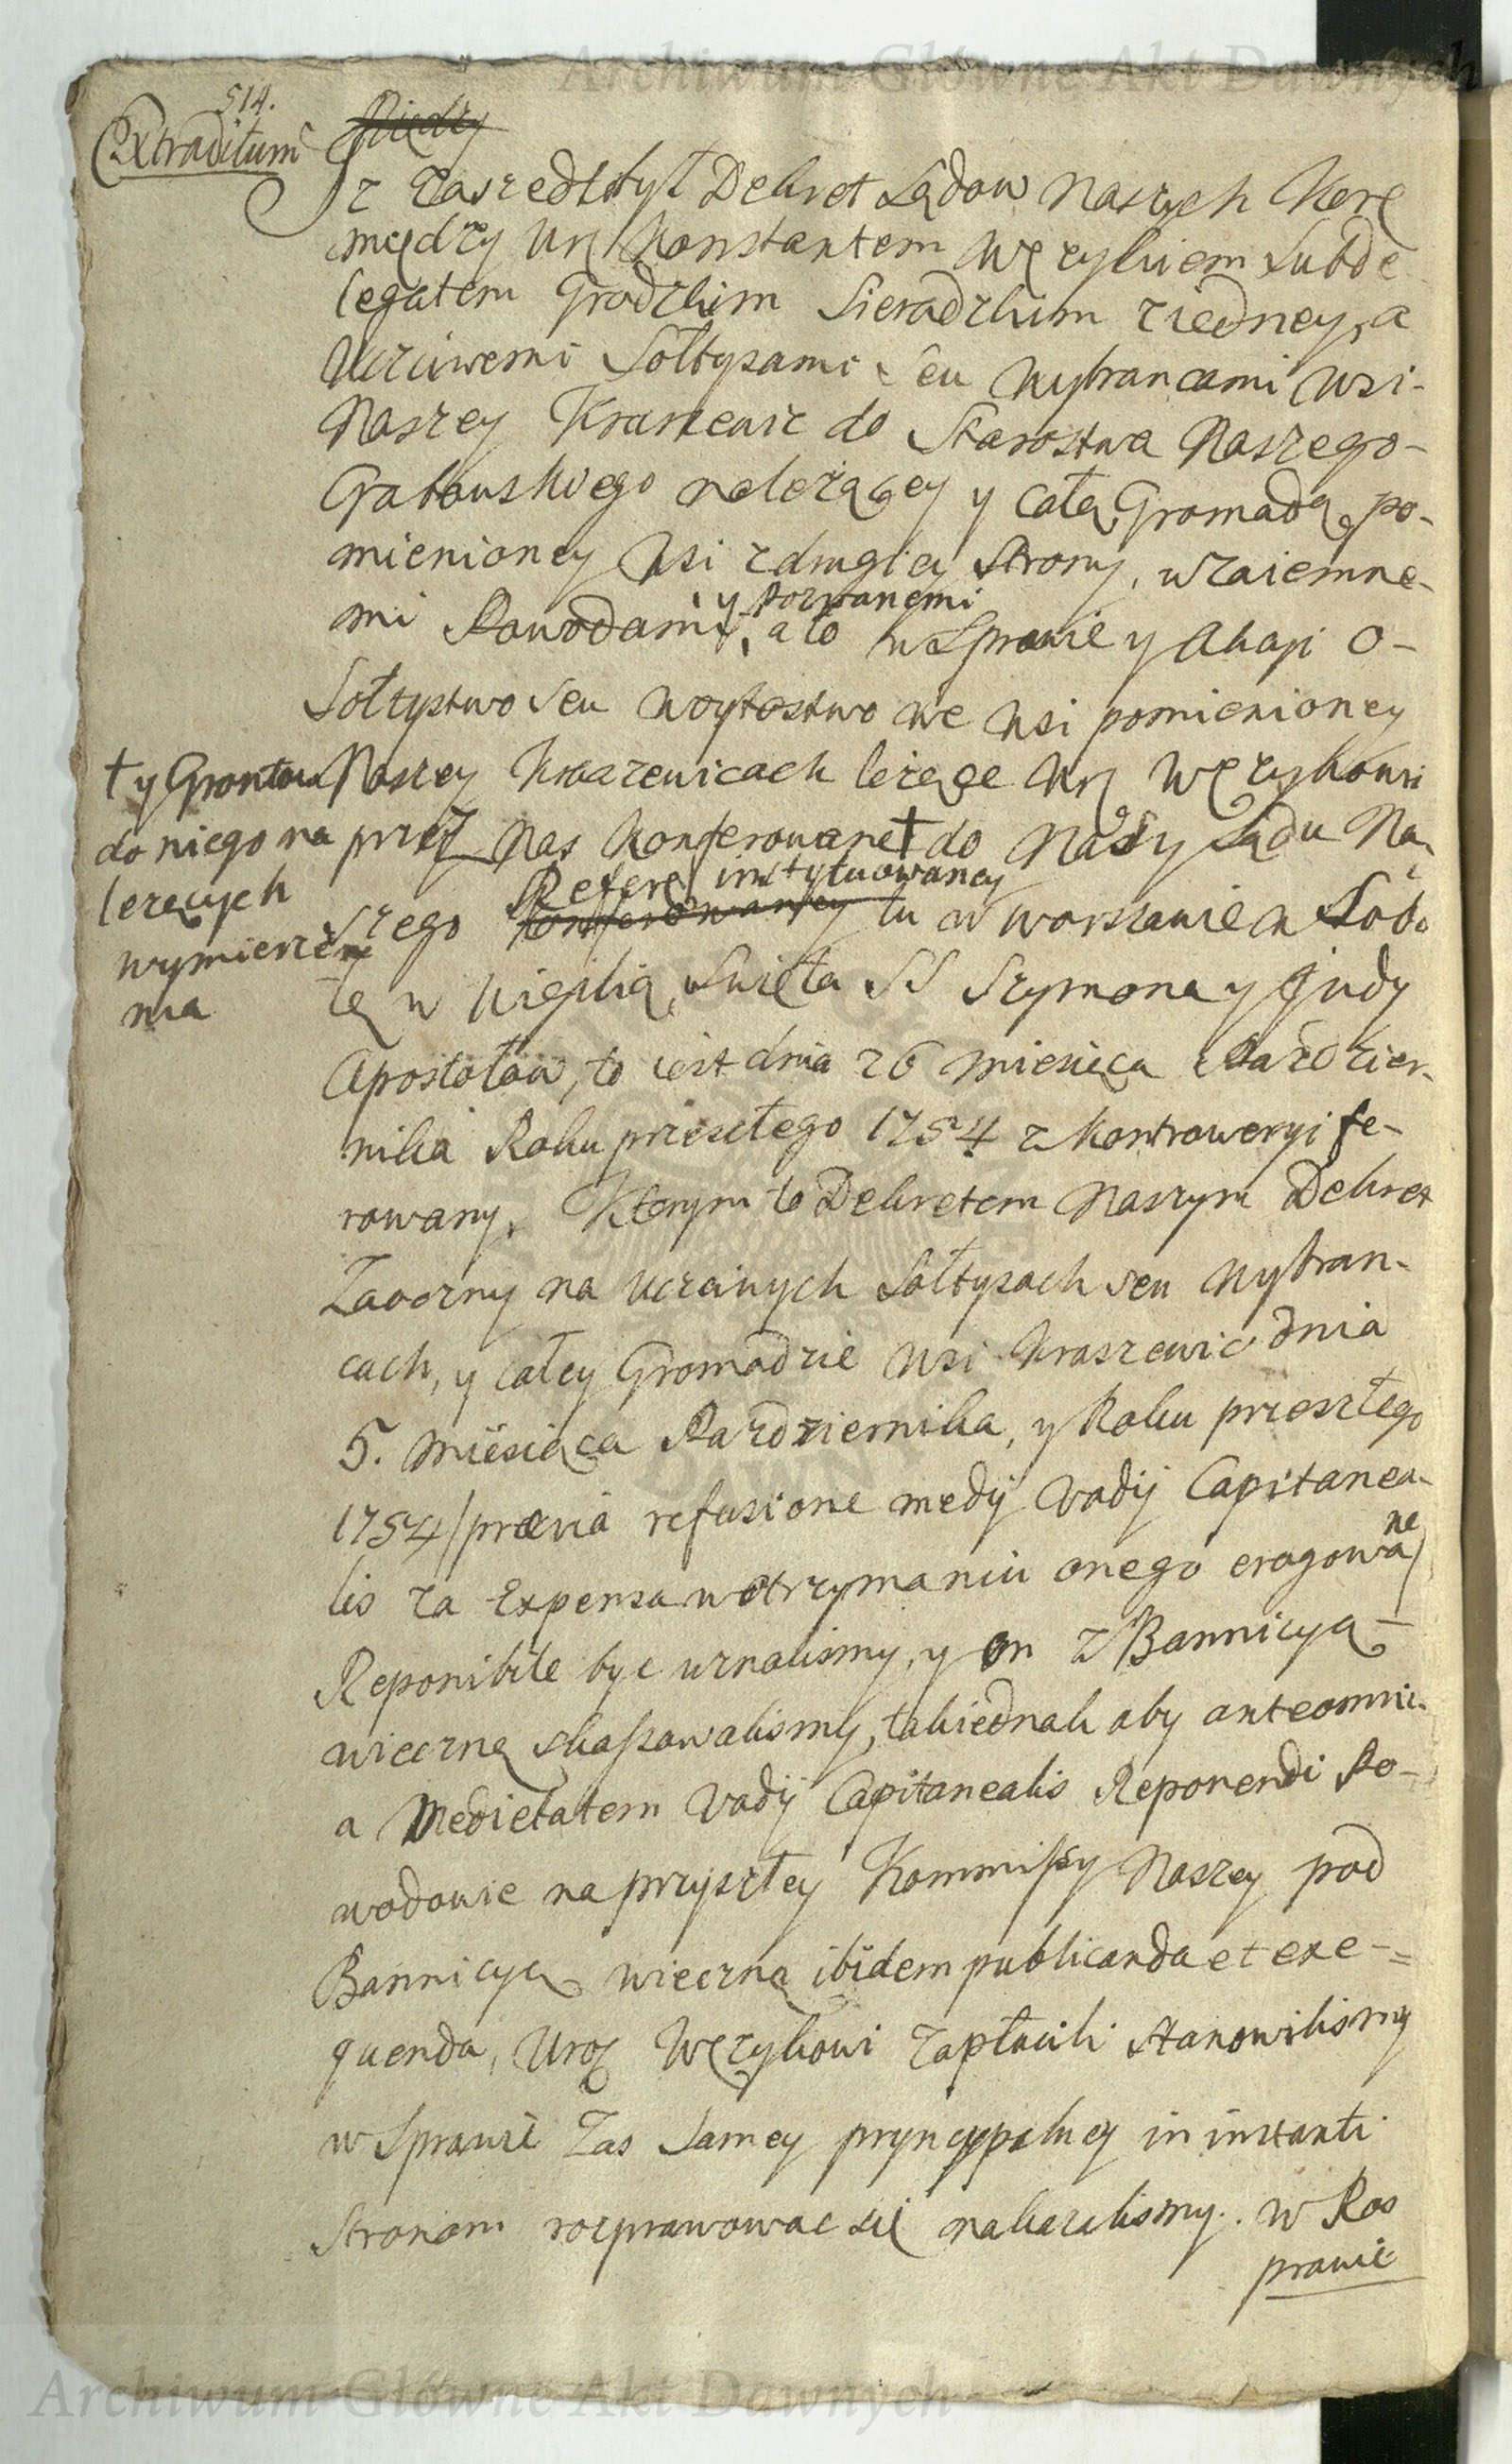 Archiwum Główne Akt Dawnych
514.
Extraditum
Między
Iż zaszedł był Dekret Sądow Naszych Kere
między Ur Konstantem Wężykiem Subde
legatem Grodzkim Sieradzkim ziedney, a
Uczciwemi Sołtysami seu Wybrancami Wsi-
Naszey Kraszewic do Starostwa Naszego-
Grabowskiego należącey y całą Gromadą po-
mienioney Wsi zdrugiey Strony, wzaiemne-
y Pozwanemi
mi Powodami, a to w Sprawie y Akcyi o-
Sołtystwo seu Woytostwo we Wsi pomienioney
Naszey Kraszewicach leżące Ur Wężykowi
† y Gruntow
do niego na
lezących
wymierze
nia
przez Nas konferowane† do Naszy Sądu Na
Refere instytuowaney
szego konferowaney tu w Warszawie w Sobo
tę w Wigilią Swięta SS Szymona y Judy
Apostołow, to iest dnia 26 Miesiąca Pazdzier-
nika Roku przeszłego 1754 z Kontrowersyi fe-
rowany. Ktorym to Dekretem Naszym Dekret
Zaoczny na Uczciwych Sołtysach seu Wybran-
cach, y całey Gromadzie Wsi Kraszewic dnia
5. Miesiąca Pazdziernika, y Roku przeszłego
1754/ prævia refusione medij Vadij Capitanea-
ne
lis za Expensa w otrzymaniu onego erogowa/
Reponibile byc uznalismy, y on z Bannicyą-
wieczną skassowalismy, takiednak aby anteomni-
a Medietatem Vadij Capitanealis Reponendi Po-
wodowie na przyszłey Kommissy Naszey pod
Bannicyą wieczną ibidem publicanda et exe-=
quenda, Uroz Wężykowi zapłacili stanowilismy
w Sprawie Zas Samey pryncypalney in instanti
Stronom rozprawowac się nakazalismy. w Ros
prawie
Archiwum Główne Akt Dawnych